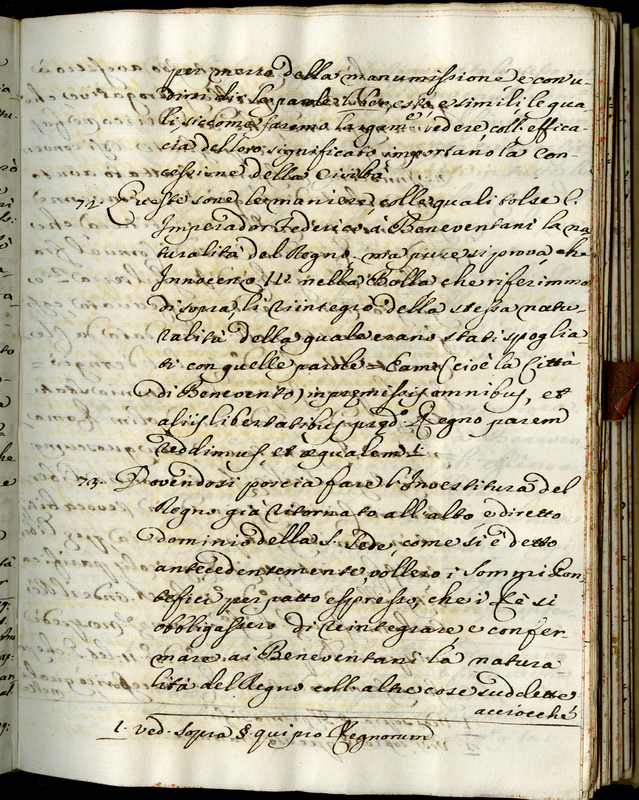 per mezzo della manumissione e con u-
dirsi dir la parola liber esto, e simili le qua-
li, siccome faremo la qui vedere coll'effica-
cia del loro significato importano la con-
cessione della Civiltà
72. Queste sono le maniere, colle quali tolse l'
Imperador Federico à Beneventani la na
turalità del Regno, ma pure si prova che
Innocenzo IV nella Bolla che riferimmo
di sopra, li riintegrò della stessa natu-
ralità della quale erano stati spoglia-
ti con quelle parole = Eam (cioè la Città
di Benevento) in premissis omnibus, et
aliis libertatibus Regno parem
reddimus, et æqualem 1.
73. Dovendosi poscia fare l'Investitura del
Regno già ritornato all'alto, e diretto
dominio della S. Sede, come si è detto
antecedentemente, vollero i Sommi Pon
tefici per patto espresso, che i Rè si
obbligassero di reintegrare e confer-
mare ai Beneventani la natura
lità del Regno coll'altre cose suddette
acciocché
1. ved. sopra §. qui pro Regnorum